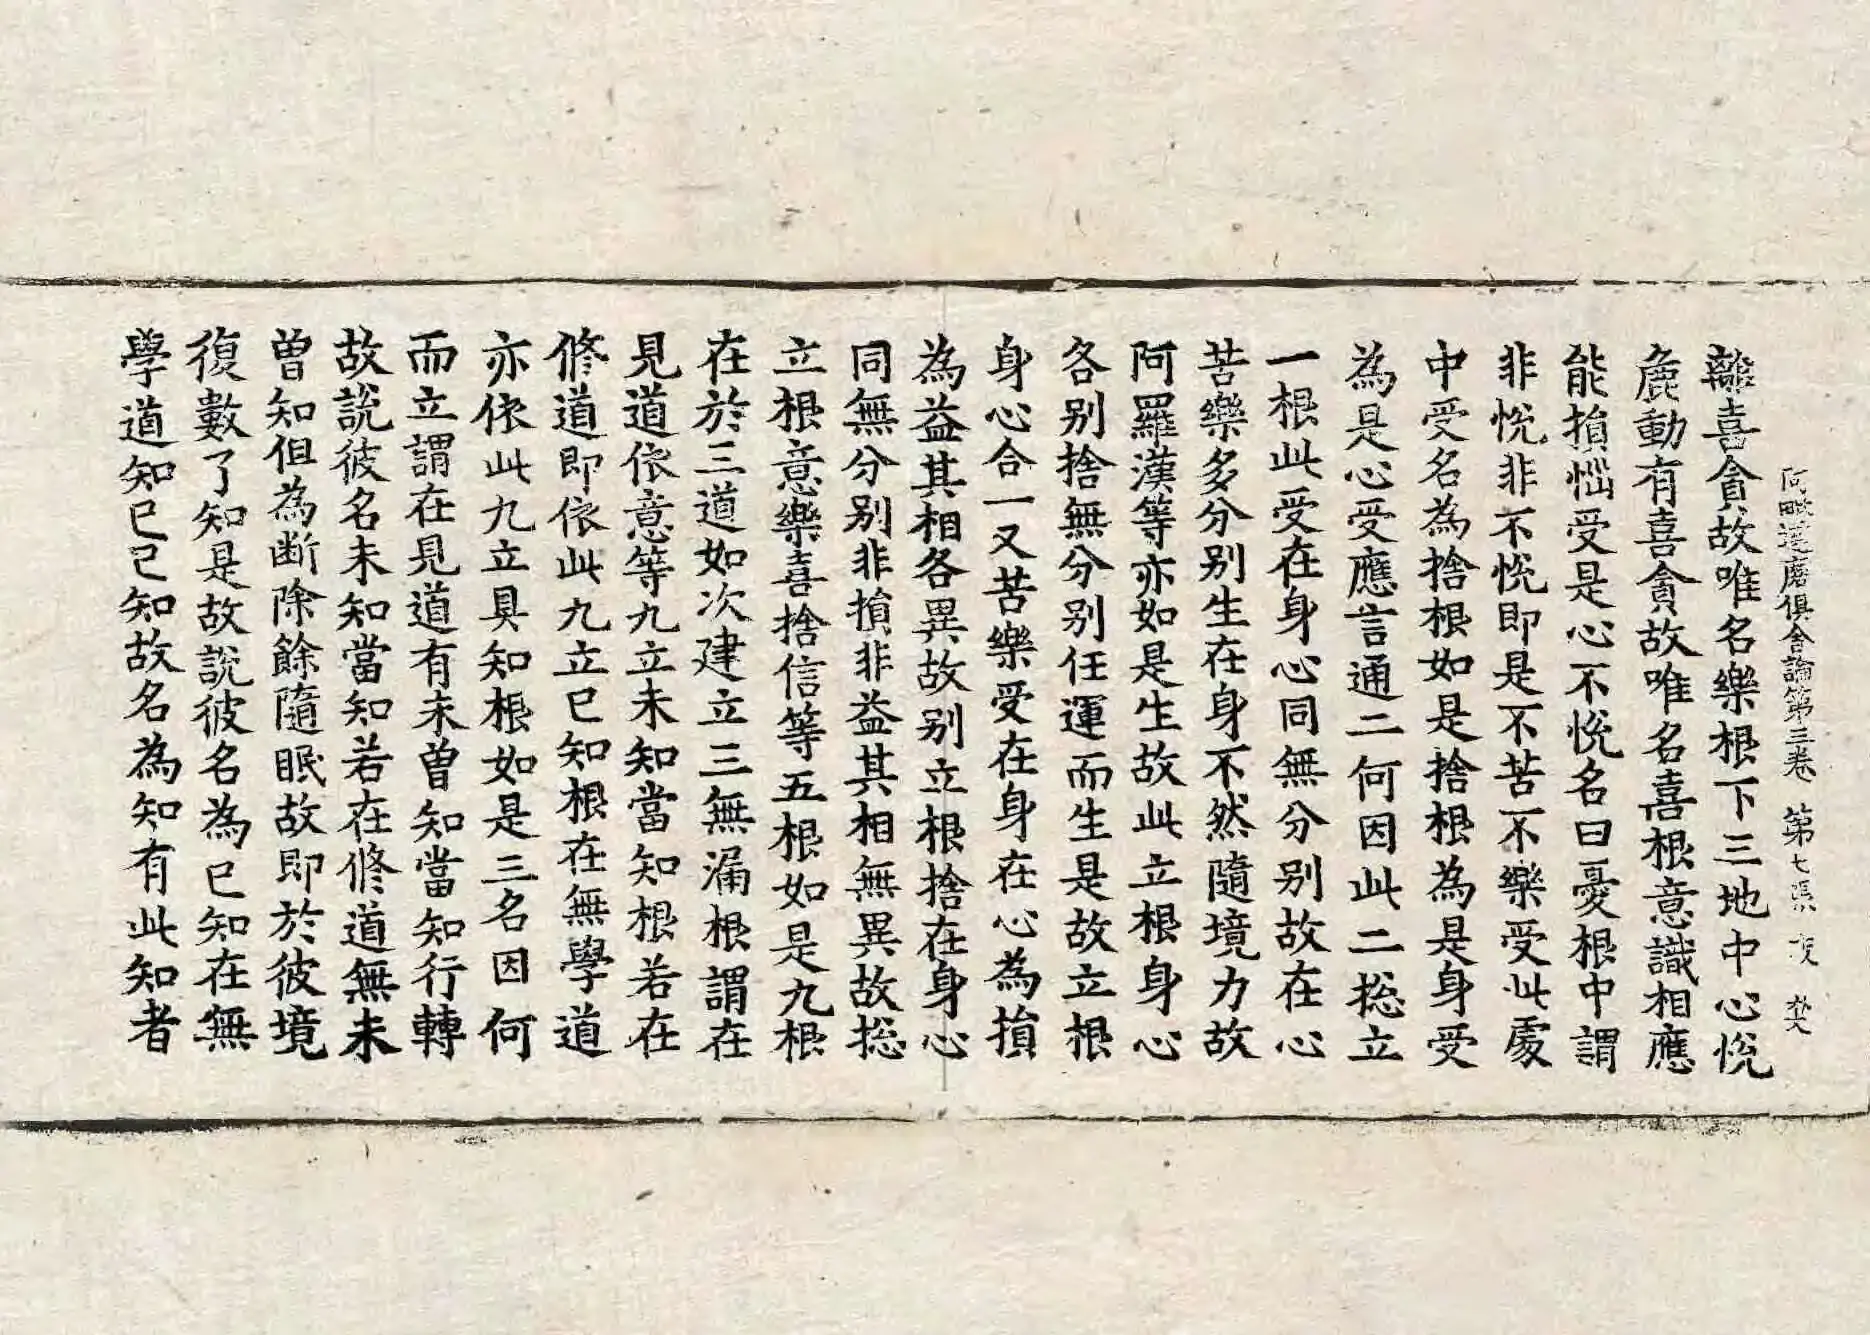 阿毗達磨俱舍論第三卷　第七張　交　埜
離喜貪故唯名樂根下三地中心恱
麁動有喜貪故唯名喜根意識相應
能損惱受是心不恱名曰憂根中謂
非恱非不恱即是不苦不樂受此處
中受名為捨根如是捨根為是身受
為是心受應言通二何因此二揔立
一根此受在身心同無分別故在心
苦樂多分別生在身不然隨境力故
阿羅漢等亦如是生故此立根身心
各別捨無分別任運而生是故立根
身心合一又苦樂受在身在心為損
為益其相各異故別立根捨在身心
同無分別非損非益其相無異故揔
立根意樂喜捨信等五根如是九根
在於三道如次建立三無漏根謂在
見道依意等九立未知當知根若在
修道即依此九立已知根在無學道
亦依此九立具知根如是三名因何
而立謂在見道有未曾知當知行轉
故說彼名未知當知若在修道無未
曾知但為斷除餘隨眠故即於彼境
復數了知是故說彼名為已知在無
學道知已已知故名為知有此知者